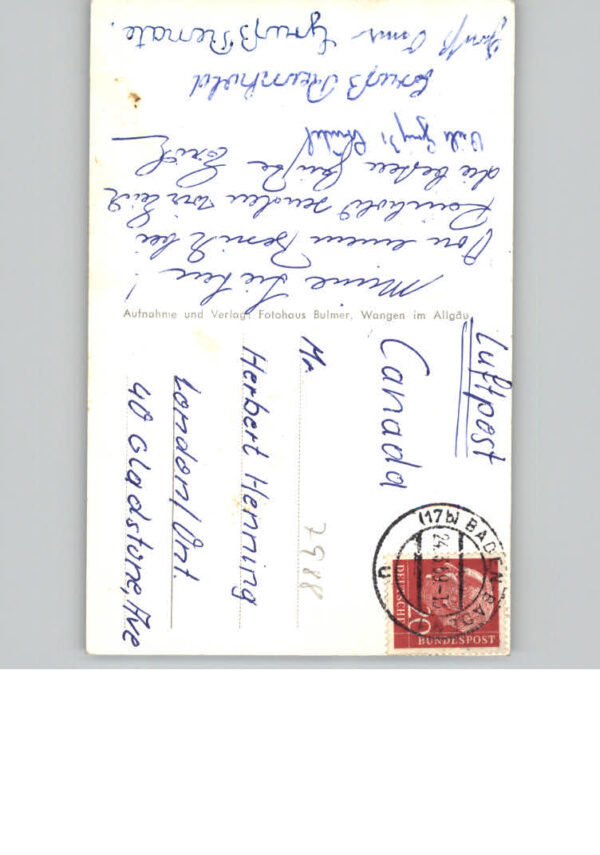 Meine Lieben!
Von einem Besuch bei
Reinhold senden wir Euch
die besten Grüße Erich
Viele Grüße
Gruß Reinhold
Gruß Gruß Renate.
Aufnahme und Verlag: Fotohaus Bulmer, Wangen im Allgäu
Luftpost
Canada
Mr.
Herbert Henning
London/Ont.
40 Gladstone, Ave
7988
(17b) BADEN-BADEN
DEUTSCHE
BUNDESPOST
20